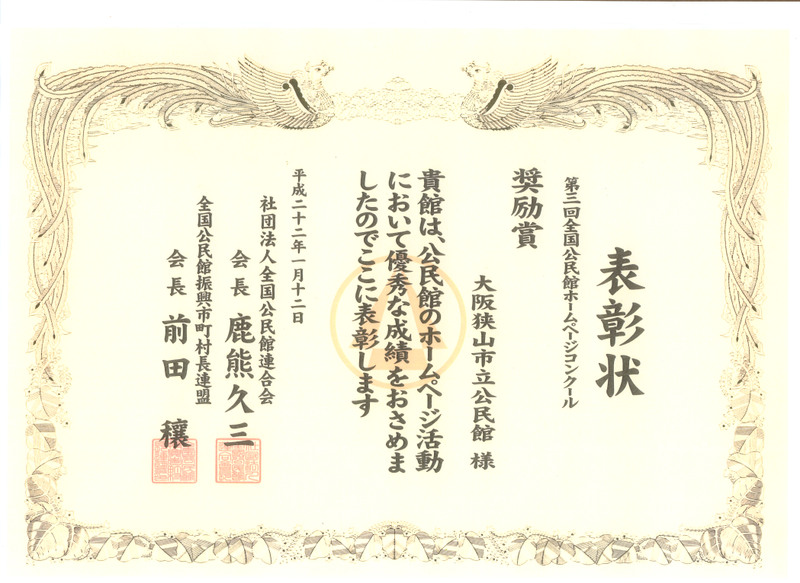 表彰状
第三回全国公民館ホームページコンクール
奨励賞
大阪狭山市立公民館 様
貴館は、公民館のホームページ活動
において優秀な成績をおさめま
したのでここに表彰します
平成二十二年一月十二日
社団法人全国公民館連合会
会長 鹿熊久三
全国公民館振興市町村長連盟
会長 前田 穰